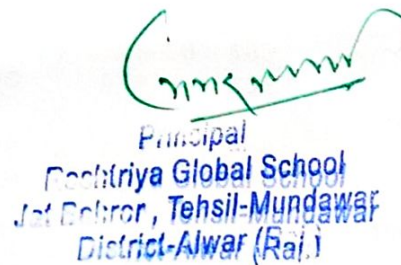 Principal
Rashtriya Global School
Jat Behror, Tehsil-Mundawar
District-Alwar (Raj.)